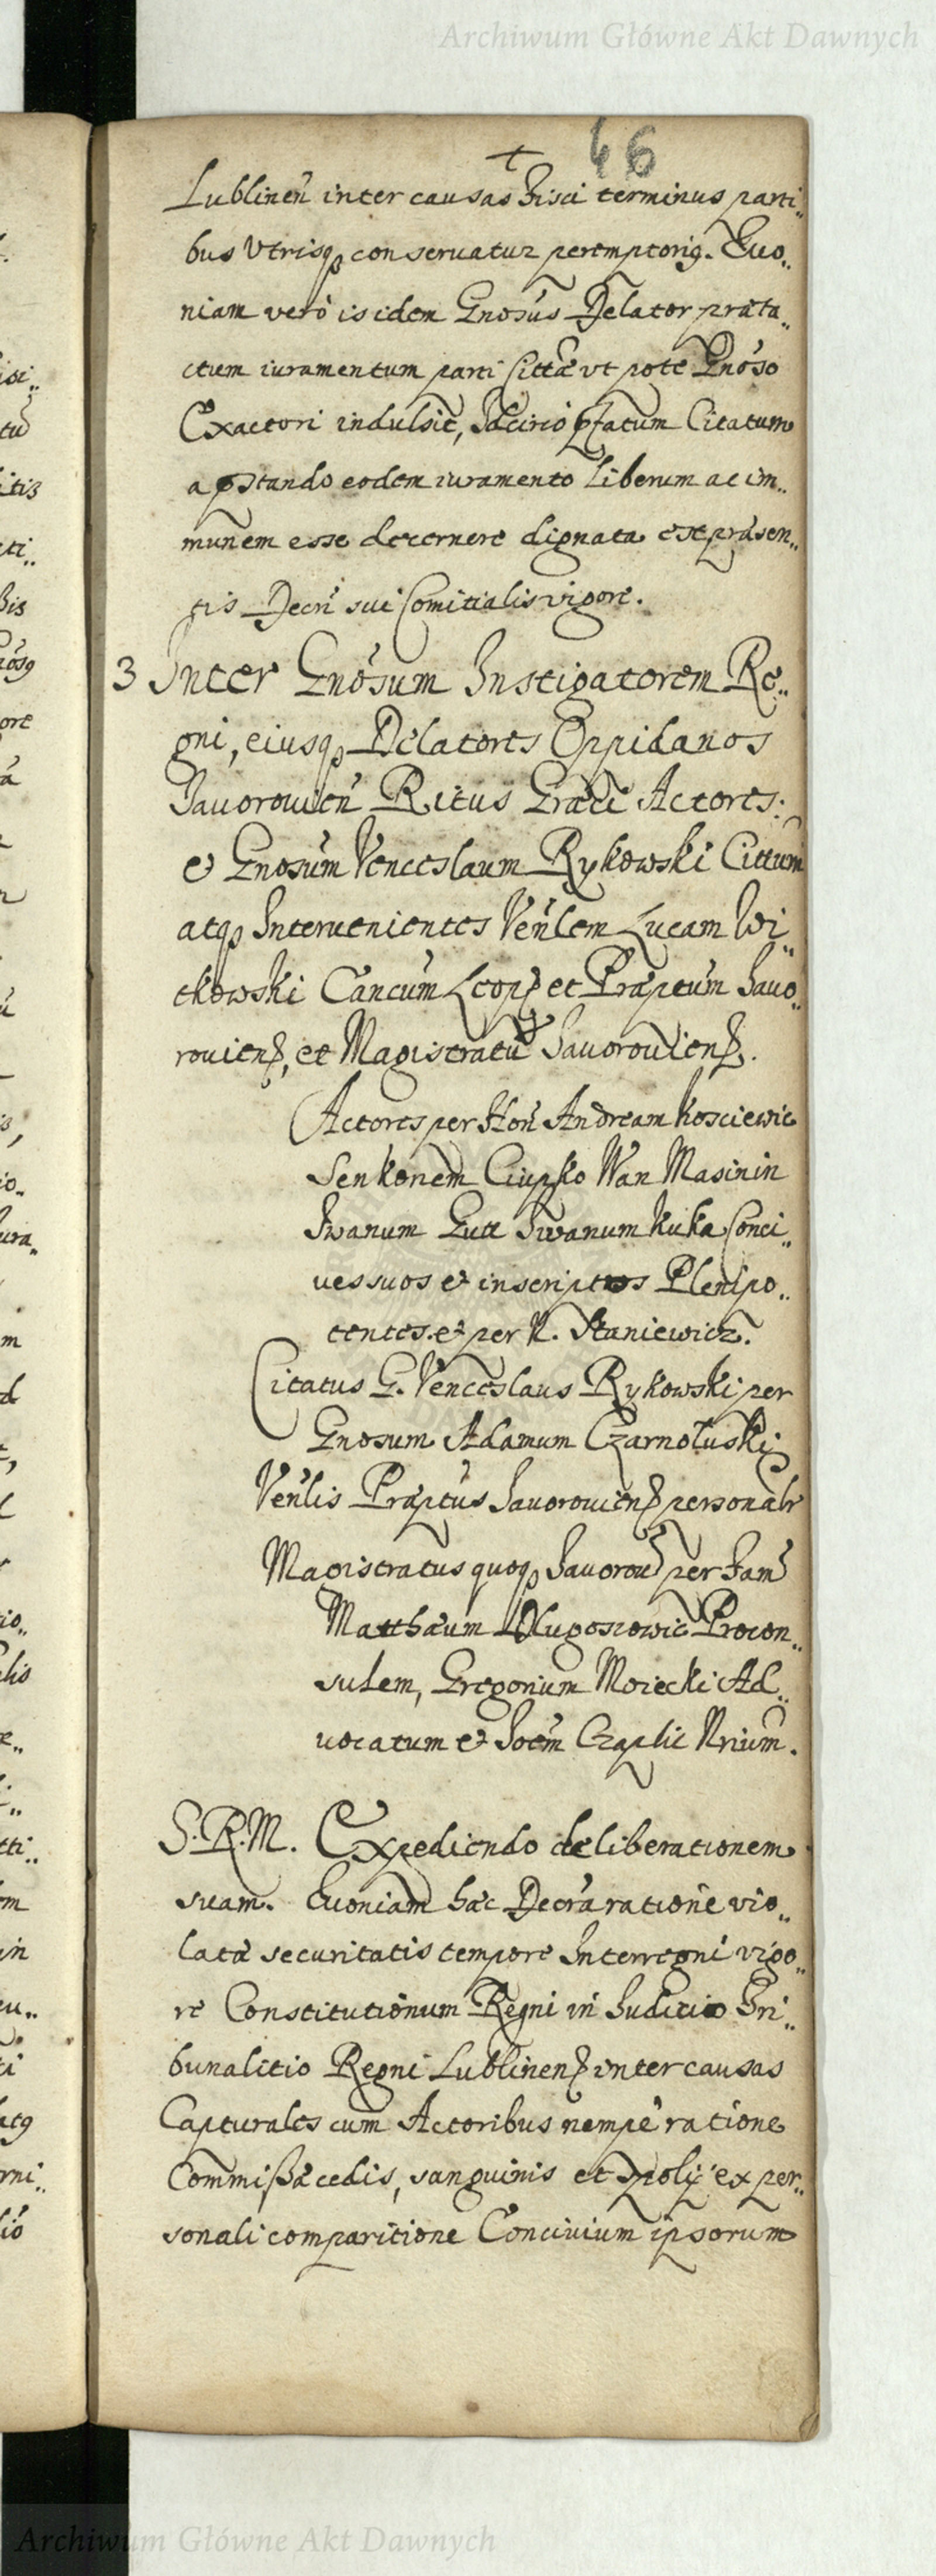 Archiwum Główne Akt Dawnych
46
Lublineñ inter causas Fisci terminus parti„
bus Utrisq conseruatur peremptorig. Quo„
niam verò is idem Gnosús Delator præta„
ctum iuramentum parti Cittæ ut pote Gnóso
Exactori indulsit, Idcirco pfatum Citatum
a pstando eodem iuramento Liberum ac im„
munem esse decernere dignata est præsen„
tis Decrî sui Comitialis vigore.
3 Inter Gnósum Instigatorem Re„
gni, eiusq Delatores Oppidanos
Iauorouień Ritus Græci Actores.
et Gnosúm Venceslaum Rykowski Cittum
atq Interuenientes Veńlem Lucam Wi„
tkowski Cancúm Leop et Præptúm Iauo„
rouień, et Magistratũ Iauorouień.
Actores per Hoń Andream Kosciewic
Senkonem Ciupko Wan Masinin
Iwanum Gutt Iwanum Kuka Conci„
ues suos et inscriptos Plenipo„
tentes. et per N. Staniewicz.
Citatus G. Venceslaus Rykowski per
Gnosum Adamum Czarnołuski
Veńlis Præptús Iauorouień personalr
Magistratus quoq Iauorou per Fam
Matthæum Długoszowic Procon„
sulem, Gregorium Moiecki Ad„
uocatum et Ioém Czaplic Nrium.
S. R. M. Expediendo deliberationem
suam. Quoniam hæc Decrá ratione vio„
latæ securitatis tempore Interregni vigo„
re Constitutionum Regni in Iudicio Tri„
bunalitio Regni Lublineń inter causas
Capturales cum Actoribus nempè ratione
Commißæ cedis, sanguinis et spolij ex per„
sonali comparitione Conciuium ipsorum
Archiwum Główne Akt Dawnych